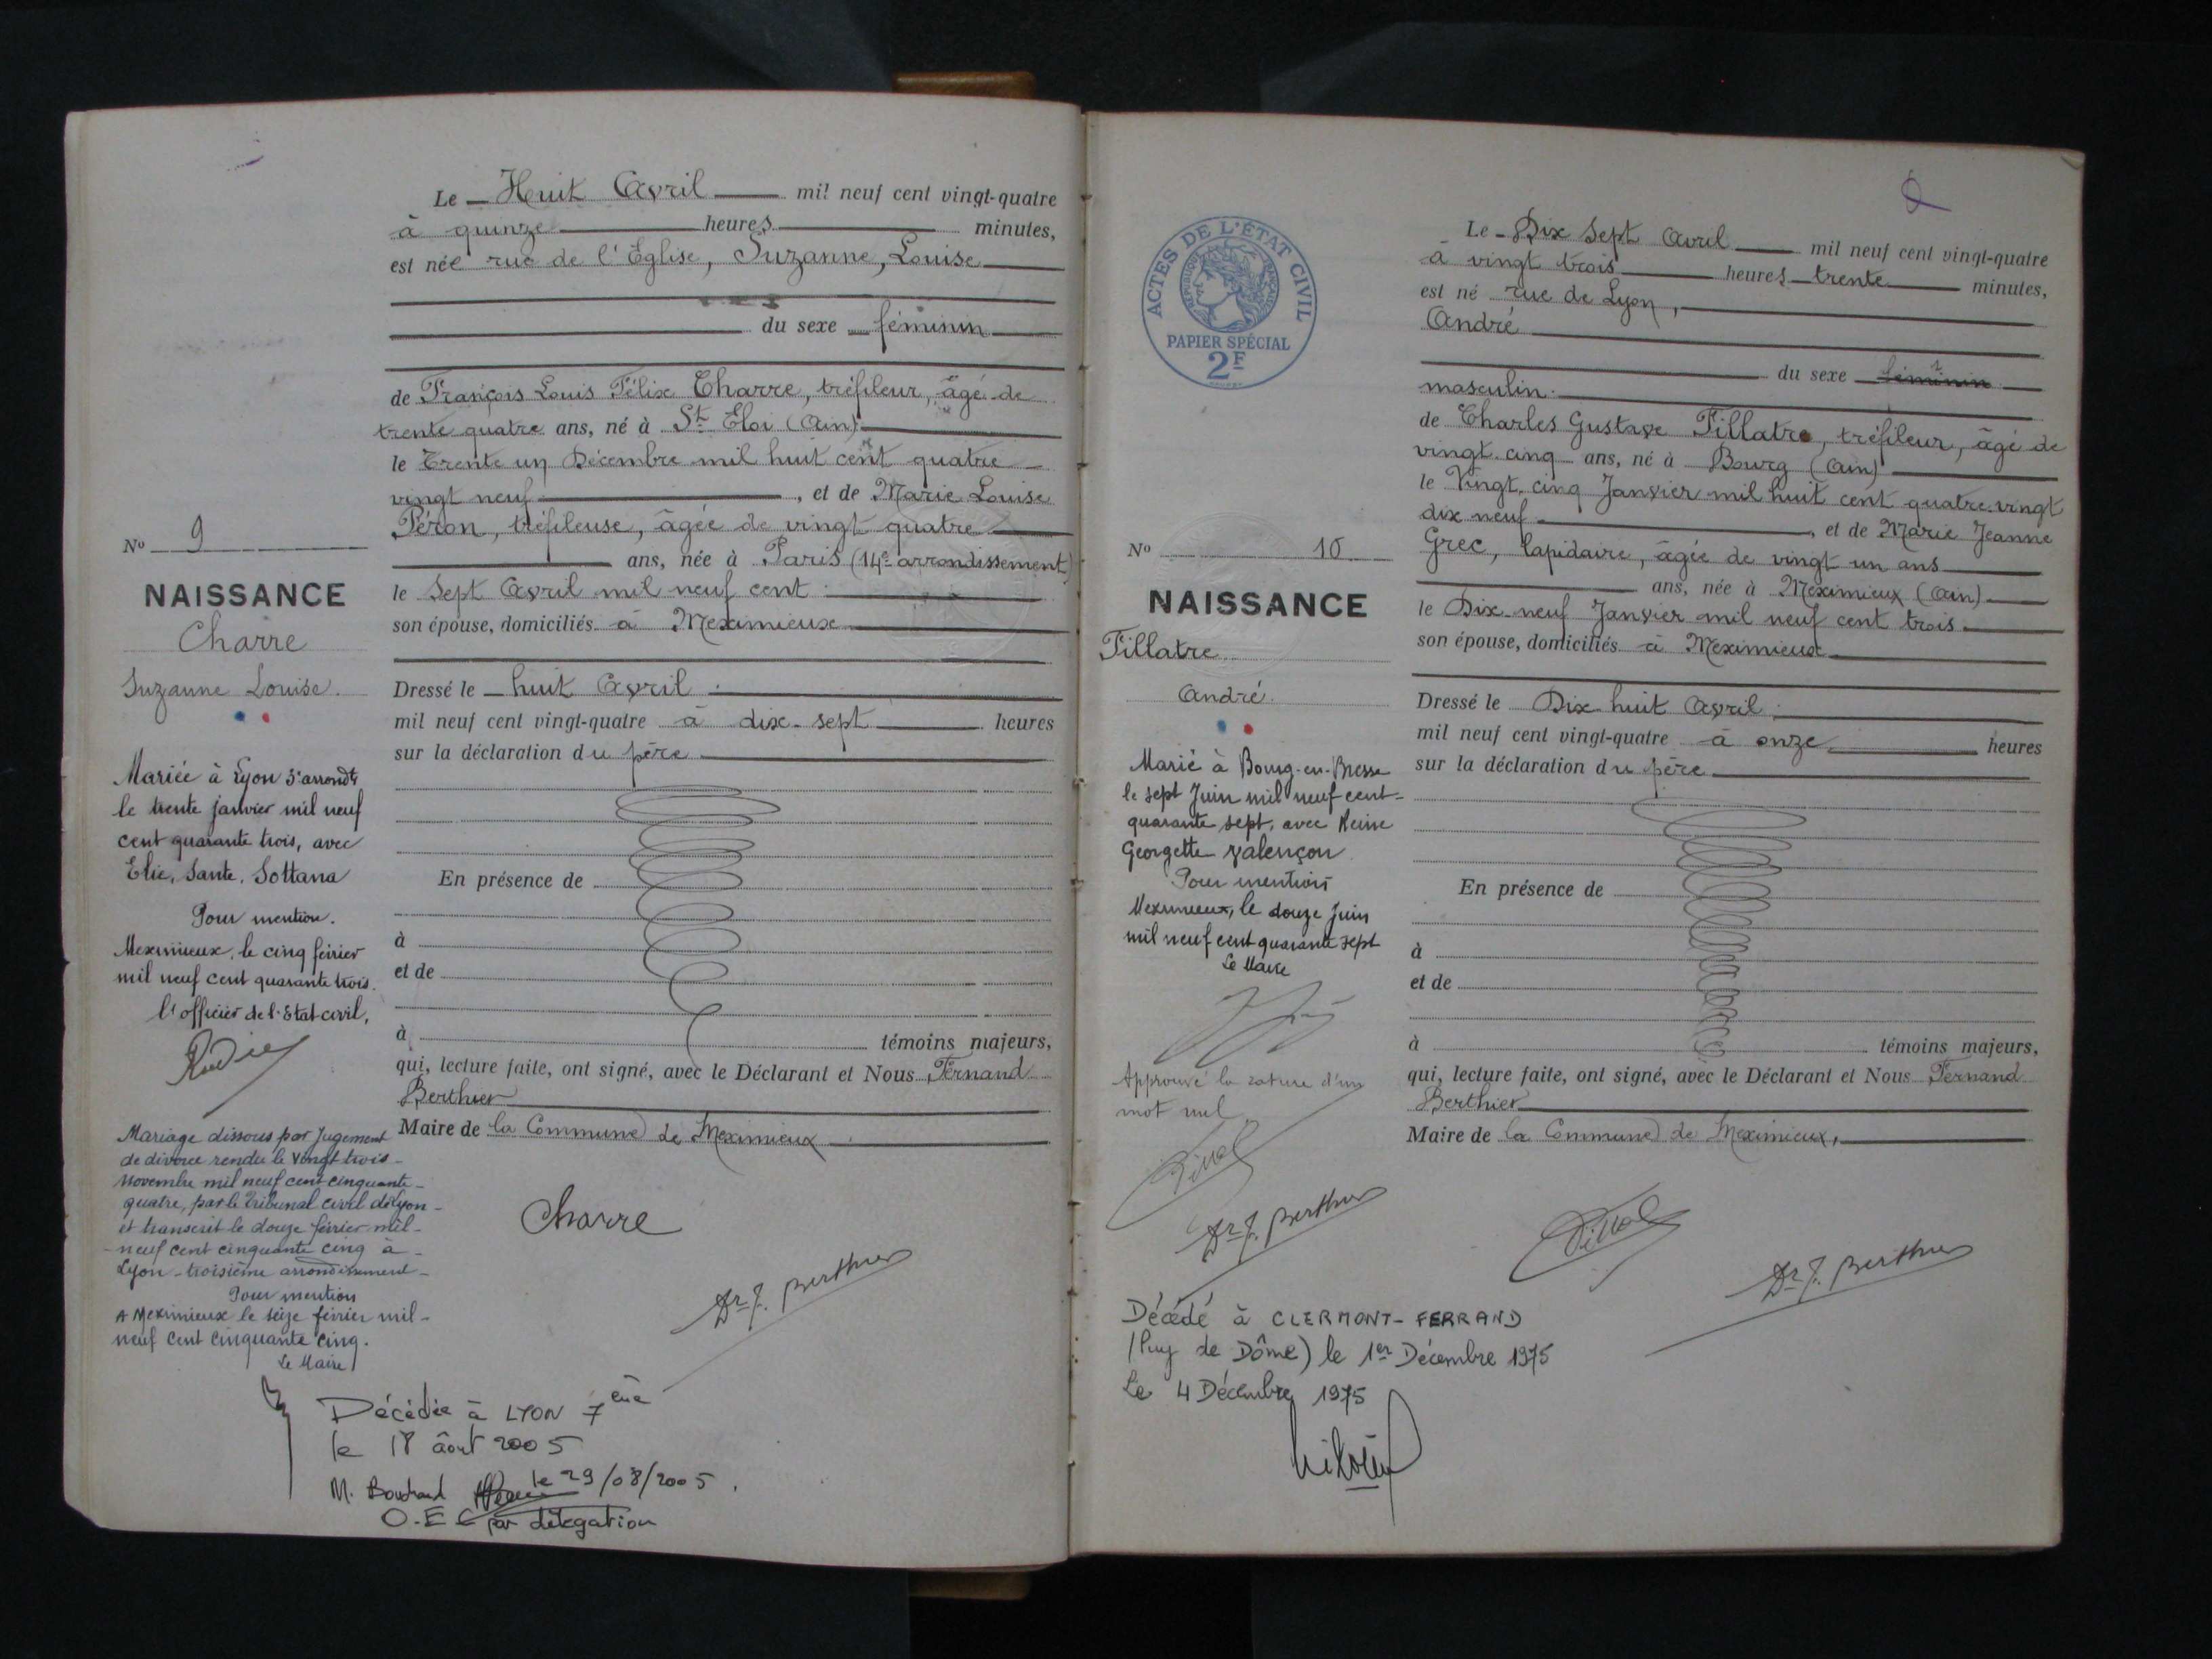 Le Huit Avril mil neuf cent vingt-quatre
à quinze heures minutes,
est née rue de l'Église, Suzanne, Louise
du sexe féminin
de François Louis Félix Charre, tréfileur, âgé de
trente quatre ans, né à St Eloi (Ain)
le Trente un Décembre mil huit cent quatre
vingt neuf, et de Marie Louise
Péron, tréfileuse, âgée de vingt quatre
ans, née à Paris (14e arrondissement)
le Sept Avril mil neuf cent
son épouse, domiciliés à Meximieux
Dressé le huit Avril
mil neuf cent vingt-quatre à dix-sept heures
sur la déclaration du père
En présence de
à
et de
à témoins majeurs,
qui, lecture faite, ont signé, avec le Déclarant et Nous Fernand
Berthier
Maire de la Commune de Meximieux
Charre
Dr F. Berthier
No 9
NAISSANCE
Charre
Suzanne Louise.
Mariée à Lyon 3e arrondt
le trente janvier mil neuf
cent quarante trois, avec
Elie, Sante, Sottana
Pour mention.
Meximieux, le cinq février
mil neuf cent quarante trois.
l'officier de l'Etat-civil,
Mariage dissous par Jugement
de divorce rendu le vingt trois
Novembre mil neuf cent cinquante
quatre, par le Tribunal civil de Lyon
et transcrit le douze février mil
neuf cent cinquante cinq à
Lyon troisième arrondissement
Pour mention
A Meximieux le seize février mil
neuf cent cinquante cinq.
Le Maire
Décédée à LYON 7ème
le 18 âout 2005
M. le 29/08/2005.
O.E.C par délégation
ACTES DE L'ÉTAT CIVIL
RÉPUBLIQUE FRANÇAISE
PAPIER SPÉCIAL
2F
Le Dix Sept Avril mil neuf cent vingt-quatre
à vingt trois heures trente minutes,
est né rue de Lyon,
André
du sexe féminin
masculin.
de Charles Gustave Pillatre, tréfileur, âgé de
vingt cinq ans, né à Bourg (Ain)
le Vingt cinq Janvier mil huit cent quatre-vingt
dix neuf, et de Marie Jeanne
Grec, lapidaire, âgée de vingt un ans
ans, née à Meximieux (Ain)
le Dix neuf Janvier mil neuf cent trois
son épouse, domiciliés à Meximieux
Dressé le Dix huit Avril
mil neuf cent vingt-quatre à onze heures
sur la déclaration du père
En présence de
à
et de
à témoins majeurs,
qui, lecture faite, ont signé, avec le Déclarant et Nous Fernand
Berthier
Maire de la Commune de Meximieux,
Dr F. Berthier
No 10
NAISSANCE
Pillatre
André.
Marié à Bourg-en-Bresse
le sept Juin mil neuf cent
quarante sept, avec Reine
Georgette Valençon
Pour mention
Meximieux, le douze Juin
mil neuf cent quarante sept
Le Maire
Approuvé la rature d'un
mot nul
Dr F. Berthier
Décédé à CLERMONT-FERRAND
(Puy de Dôme) le 1er Décembre 1975
Le 4 Décembre 1975